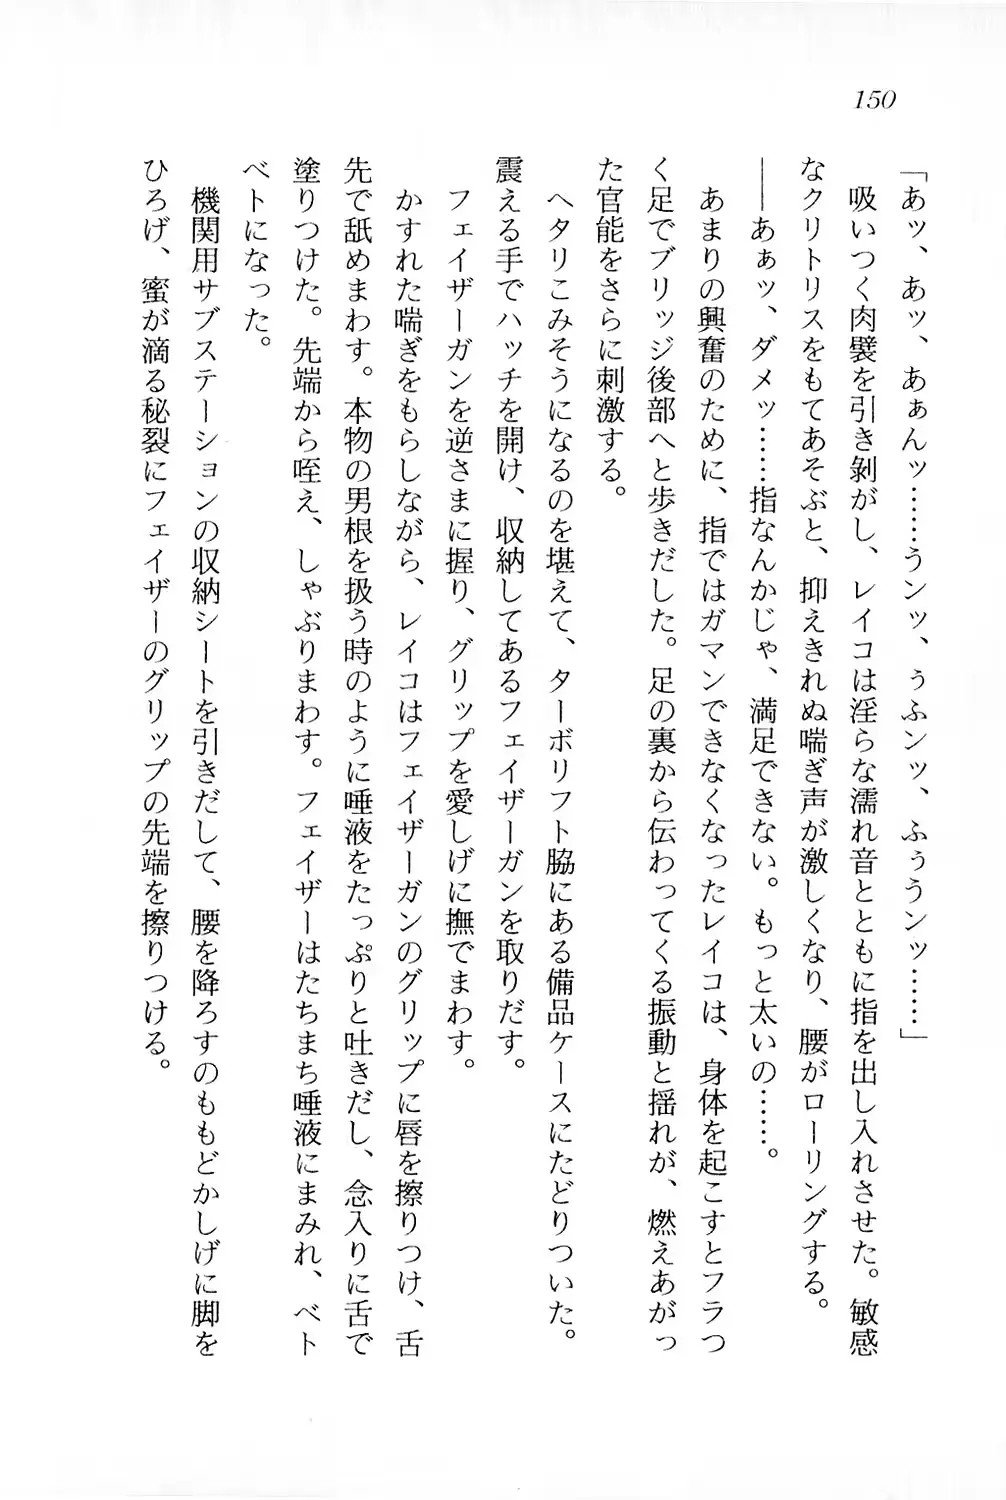 150
「あッ、あッ、あぁんッ……うンッ、ぅふンッ、ふぅうンッ……」
吸いつく肉襞を引き剝がし、レイコは淫らな濡れ音とともに指を出し入れさせた。敏感
なクリトリスをもてあそぶと、抑えきれぬ喘ぎ声が激しくなり、腰がローリングする。
――あぁッ、ダメッ……指なんかじゃ、満足できない。もっと太いの……。
あまりの興奮のために、指ではガマンできなくなったレイコは、身体を起こすとフラつ
く足でブリッジ後部へと歩きだした。足の裏から伝わってくる振動と揺れが、燃えあがっ
た官能をさらに刺激する。
ヘタリこみそうになるのを堪えて、ターボリフト脇にある備品ケースにたどりついた。
震える手でハッチを開け、収納してあるフェイザーガンを取りだす。
フェイザーガンを逆さまに握り、グリップを愛しげに撫でまわす。
かすれた喘ぎをもらしながら、レイコはフェイザーガンのグリップに唇を擦りつけ、舌
先で舐めまわす。本物の男根を扱う時のように唾液をたっぷりと吐きだし、念入りに舌で
塗りつけた。先端から咥え、しゃぶりまわす。フェイザーはたちまち唾液にまみれ、ベト
ベトになった。
機関用サブステーションの収納シートを引きだして、腰を降ろすのももどかしげに脚を
ひろげ、蜜が滴る秘裂にフェイザーのグリップの先端を擦りつける。